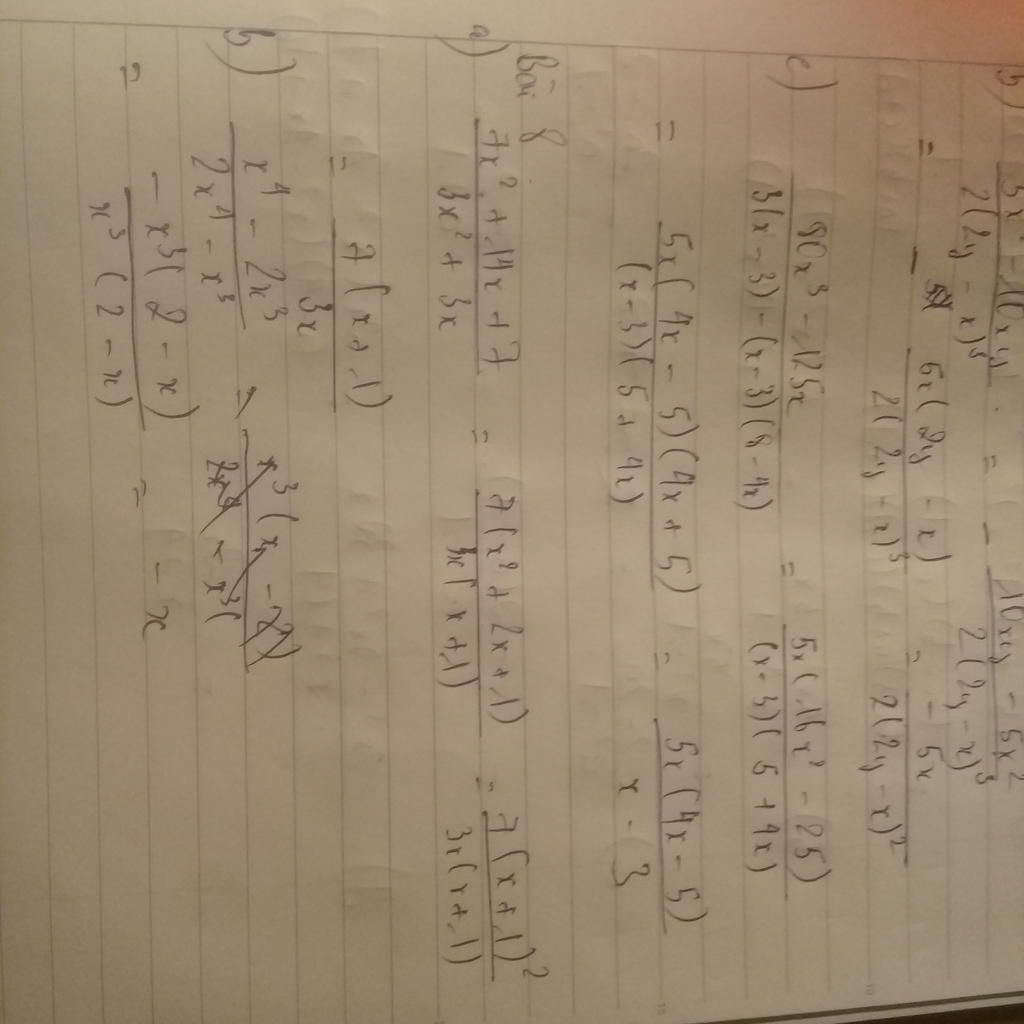 b) 5x² - 10xy / 2(2y - x)³ = - 10xy - 5x² / 2(2y - x)³
= - 5x(2y - x) / 2(2y - x)³ = - 5x / 2(2y - x)²
c) 80x³ - 125x / 3(x - 3) - (x - 3)(8 - 4x) = 5x(16x² - 25) / (x - 3)(5 + 4x)
= 5x(4x - 5)(4x + 5) / (x - 3)(5 + 4x) = 5x(4x - 5) / x - 3
Bài 8
a) 7x² + 14x + 7 / 3x² + 3x = 7(x² + 2x + 1) / 3x(x + 1) = 7(x + 1)² / 3x(x + 1)
= 7(x + 1) / 3x
b) x⁴ - 2x³ / 2x⁴ - x³ =
= - x³(2 - x) / x³(2 - x) = - x